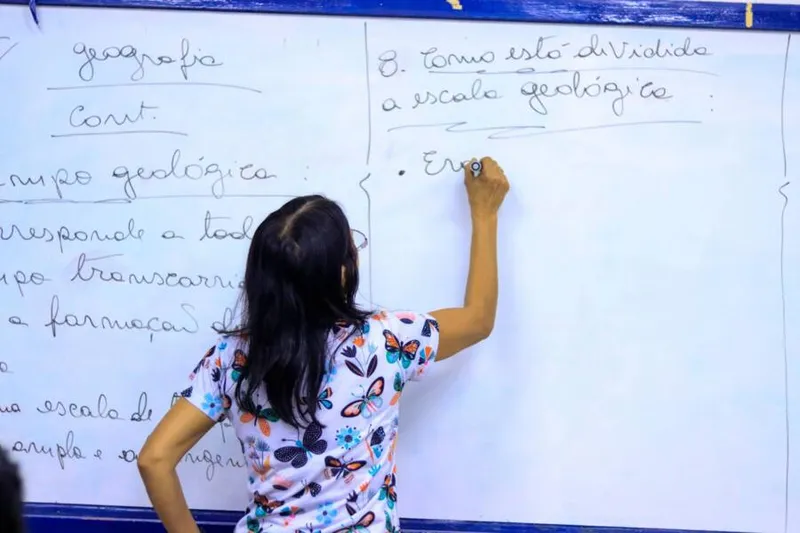 geografia
Cont.
geológica :
a tod
transcorri
a formação d
escala de
ampla e
8. Como está dividida
a escala geológica :
• Era